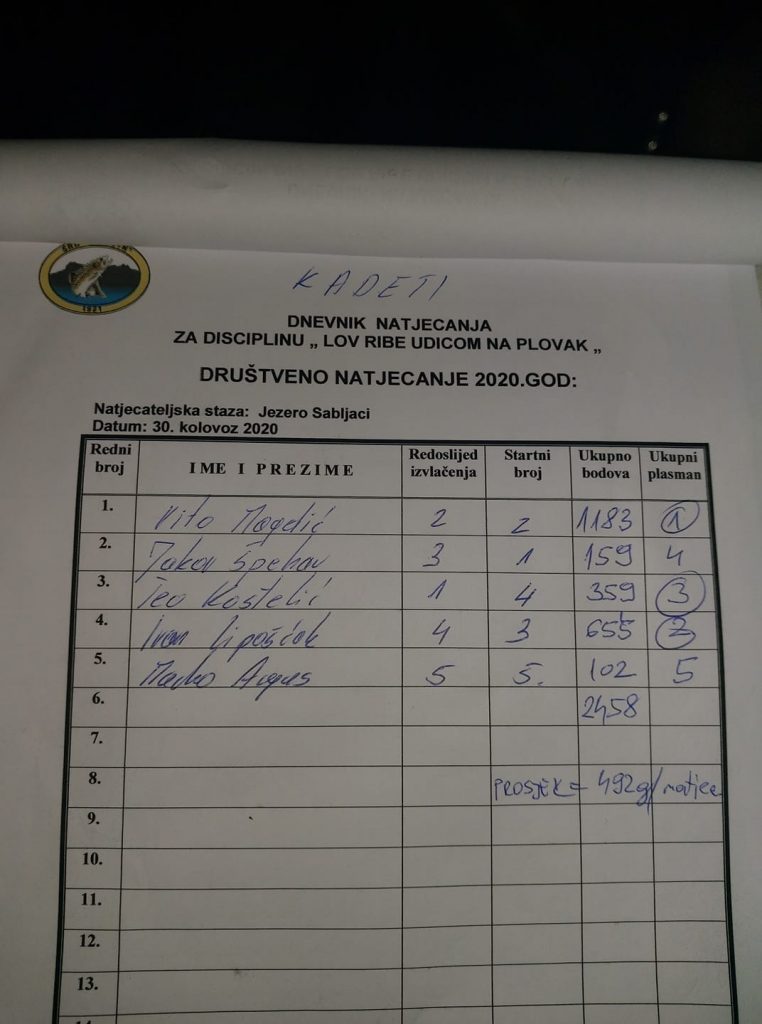 1921
KADETI
DNEVNIK NATJECANJA
ZA DISCIPLINU „ LOV RIBE UDICOM NA PLOVAK „
DRUŠTVENO NATJECANJE 2020.GOD:
Natjecateljska staza: Jezero Sabljaci
Datum: 30. kolovoz 2020
Redni broj IME I PREZIME Redoslijed izvlačenja Startni broj Ukupno bodova Ukupni plasman
1. Vito Magdić 2 2 1183 1
2. Jakov Špehar 3 1 159 4
3. Teo Kostelić 1 4 359 3
4. Ivan Lipošćak 4 3 655 2
5. Marko 5 5. 102 5
6. 2458
7.
8. PROSJEK = 492g/natjec
9.
10.
11.
12.
13.